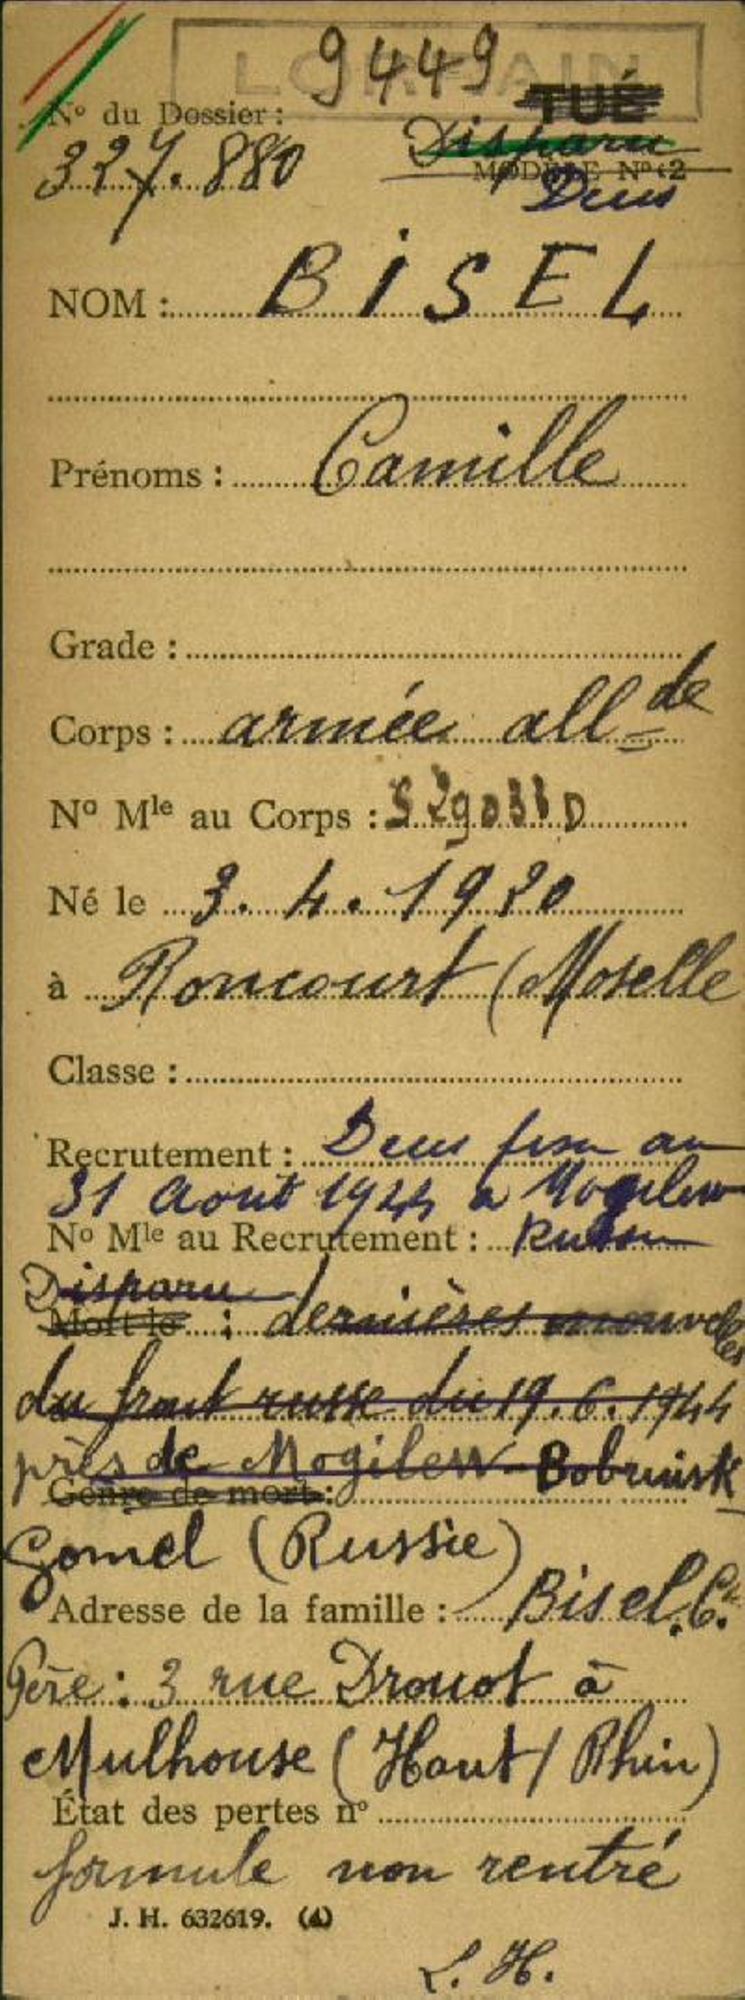 LORRAIN
9449
N° du Dossier :
TUÉ
327.880
Disparu
MODÈLE N° 2
Deus
NOM : BISEL
Prénoms : Camille
Grade :
Corps : armée all de
N° Mle au Corps :
Né le 3. 4. 1920
à Roncourt (Moselle
Classe :
Recrutement : Deus au
31 Aout 1944 a Mogilew
N° Mle au Recrutement : Russie
Disparu
Mort le : dernières nouvelles
du front russe du 19. 6. 1944
près de Mogilew - Bobruisk
Genre de mort :
Gomel (Russie)
Adresse de la famille : Bisel. C.
Père : 3 rue Drouot à
Mulhouse (Haut / Rhin)
État des pertes n°
formule non rentré
J. H. 632619. (4)
L. H.